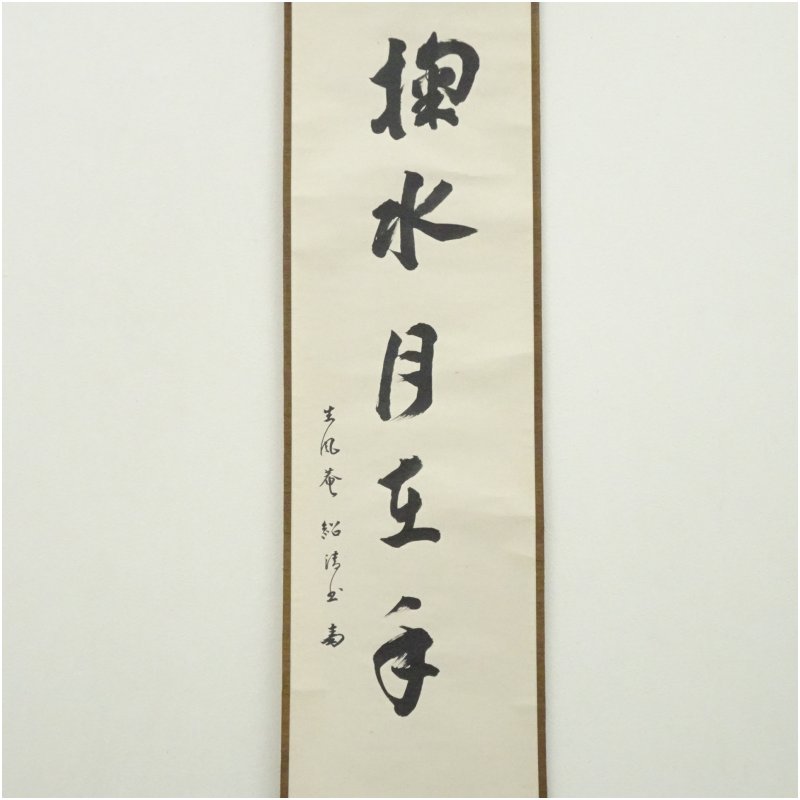 掬水月在手
生風庵 紹清书